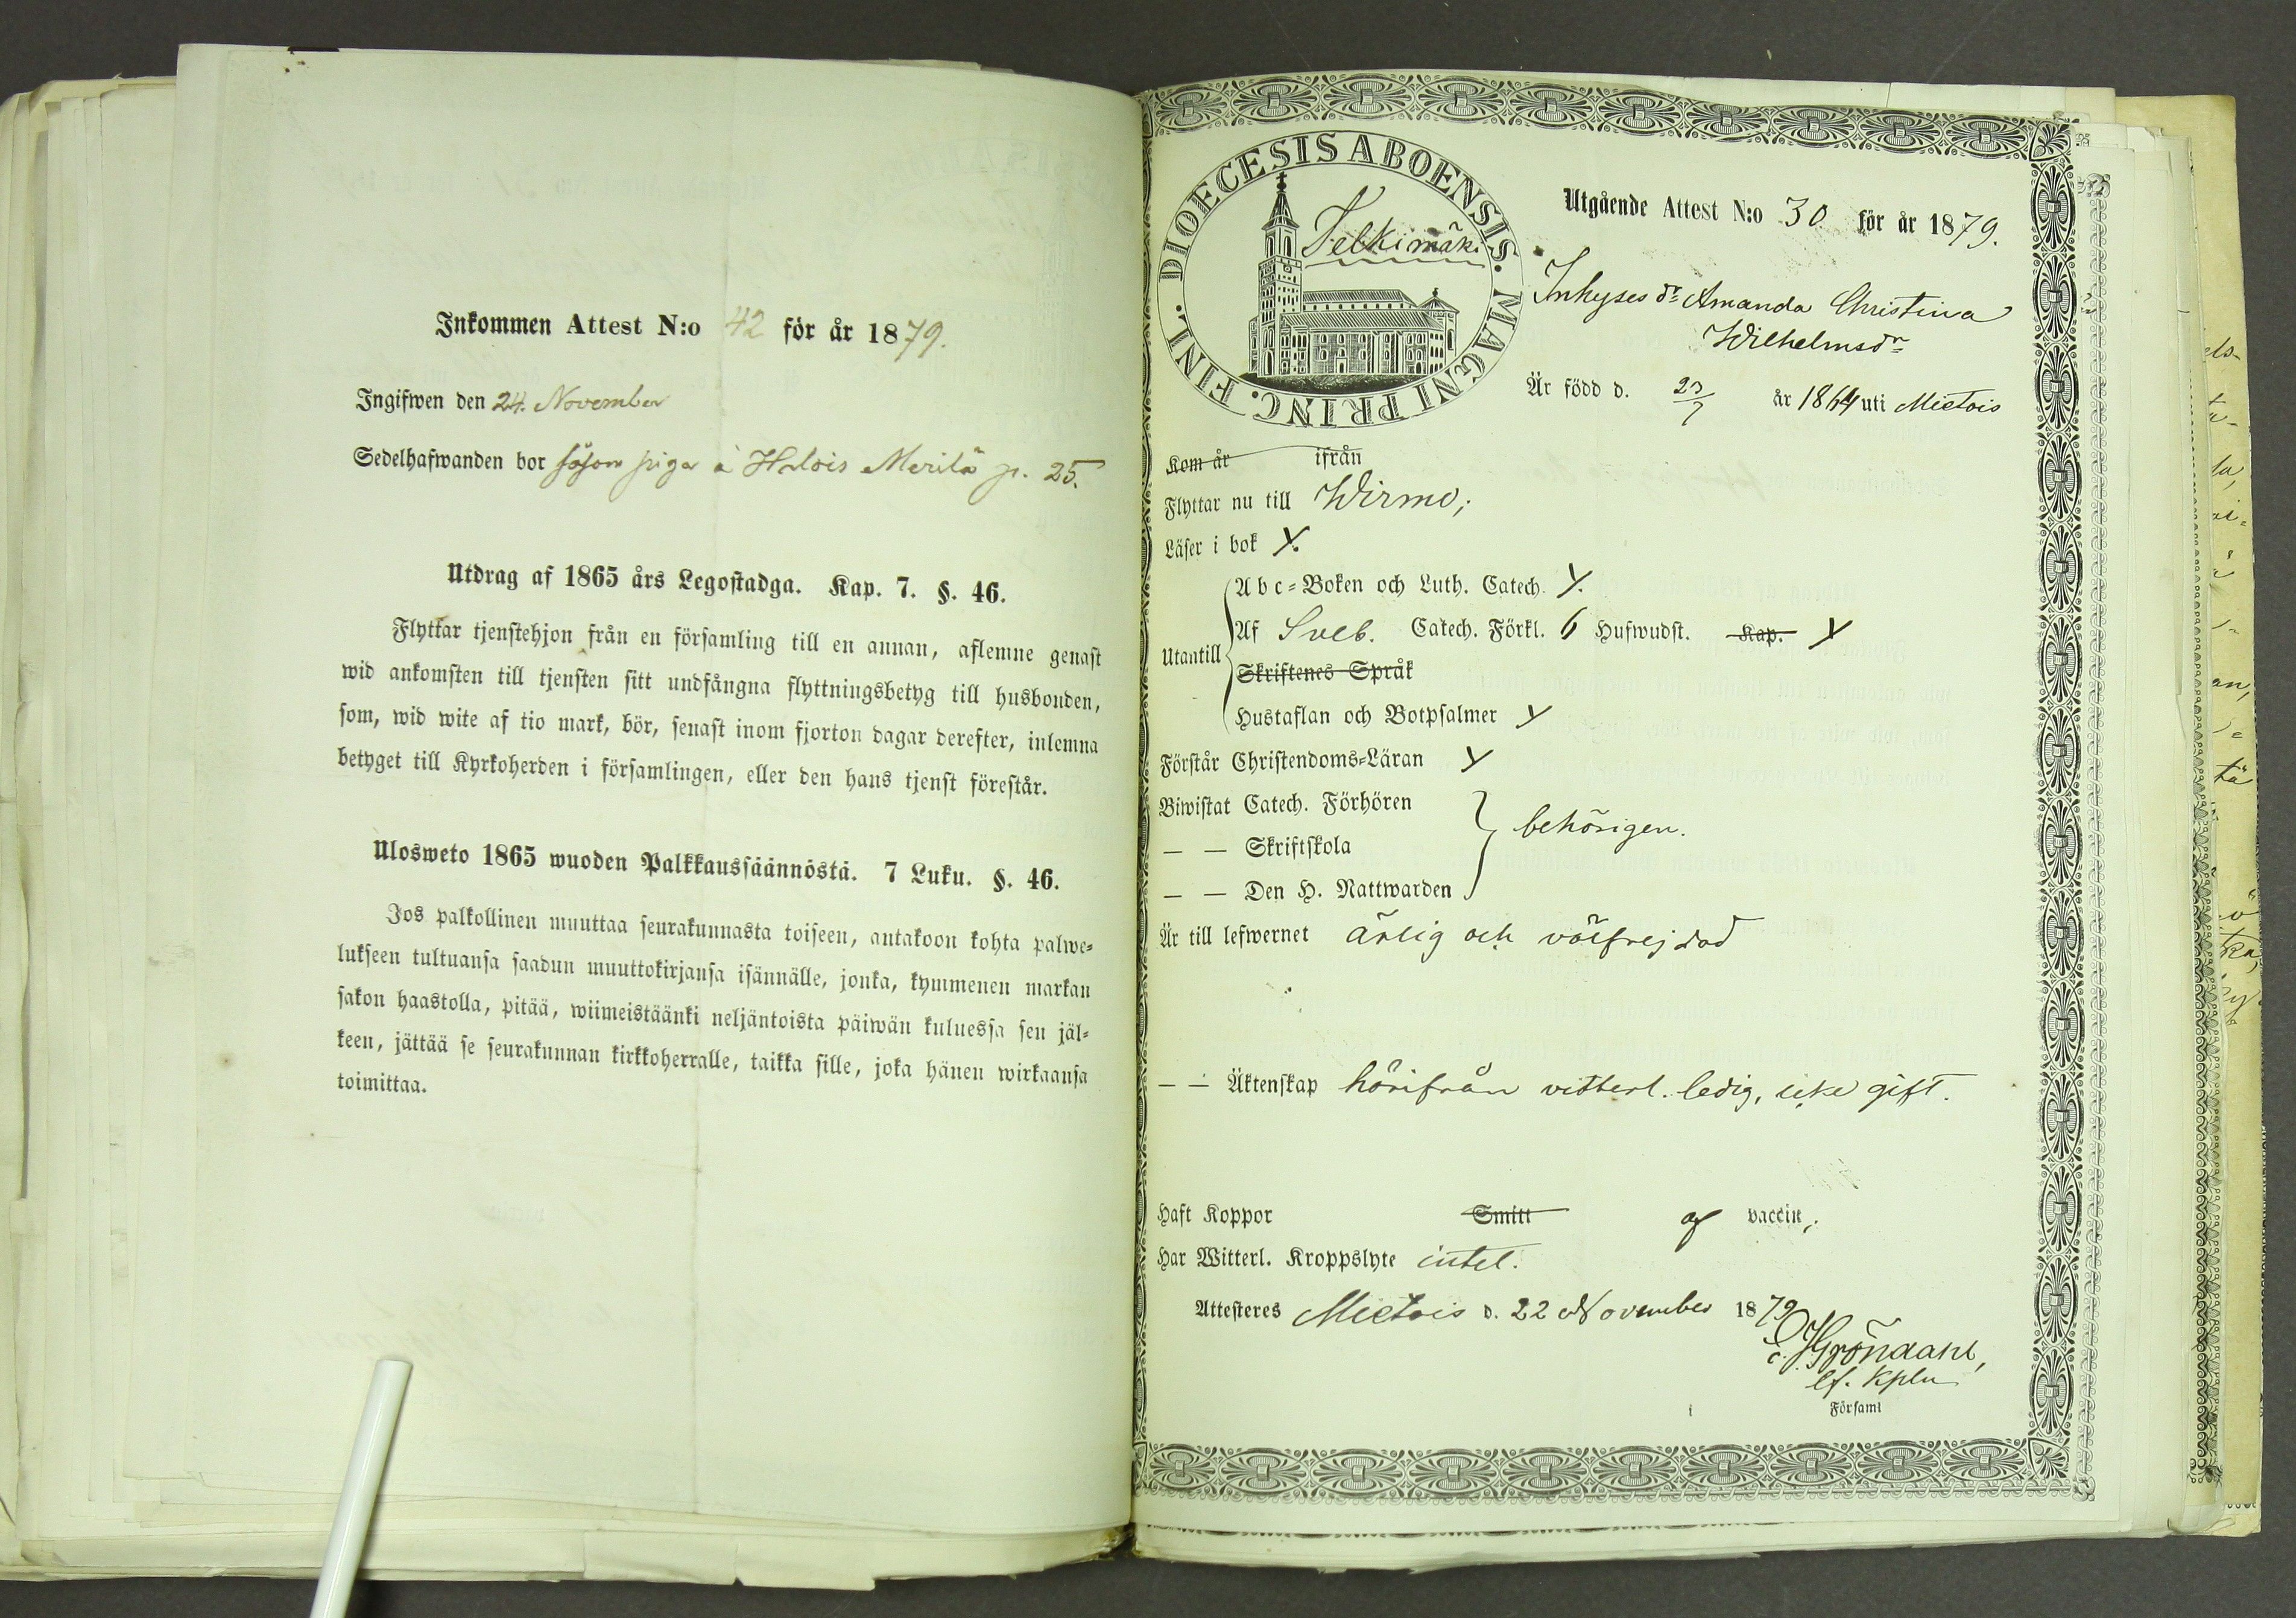 Inkommen Attest N:o 42 för år 1879.
Ingifwen den 24. November
Sedelhafwanden bor såsom piga à Halois Merilä p. 25.
Utdrag af 1865 års Legostadga. Kap. 7. §. 46.
Flyttar tjenstehjon från en församling till en annan, aflemne genast
wid ankomsten till tjensten sitt undfångna flyttningsbetyg till husbonden,
som, wid wite af tio mark, bör, senast inom fjorton dagar derefter, inlemna
betyget till Kyrkoherden i församlingen, eller den hans tjenst förestår.
Ulosweto 1865 wuoden Palkkaussäännöstä. 7 Luku. §. 46.
Jos palkollinen muuttaa seurakunnasta toiseen, antakoon kohta palwe-
lukseen tultuansa saadun muuttokirjansa isännälle, jonka, kymmenen markan
sakon haastolla, pitää, wiimeistäänki neljäntoista päiwän kuluessa sen jäl-
keen, jättää se seurakunnan kirkkoherralle, taikka sille, joka hänen wirkaansa
toimittaa.
DIOECESIS ABOENSIS. MAGNI PRINC. FINL.
Telkimäki
Utgående Attest N:o 30 för år 1879.
Inhyses dr Amanda Christina
Wilhelmsdr
Är född d. 23/7 år 1864 uti Mietois
Kom år ifrån
Flyttar nu till Wirmo;
Läser i bok Y.
Utantill
Abc-Boken och Luth. Catech. Y.
Af Sveb. Catech. Förkl. 6 Hufwudst. Kap. Y
Skriftenes Språk
Hustaflan och Botpsalmer Y
Förstår Christendoms-Läran Y
Biwistat Catech. Förhören
— — Skriftskola
behörigen.
— — Den H. Nattwarden
Är till lefwernet ärlig och välfrejdad
— — Äktenskap härifrån vitterl. ledig, icke gift.
Haft Koppor Smitt af vaccin,
Har Witterl. Kroppslyte intet.
Attesteres Mietois d. 22 November 1879
Gröndahl,
Församl
i